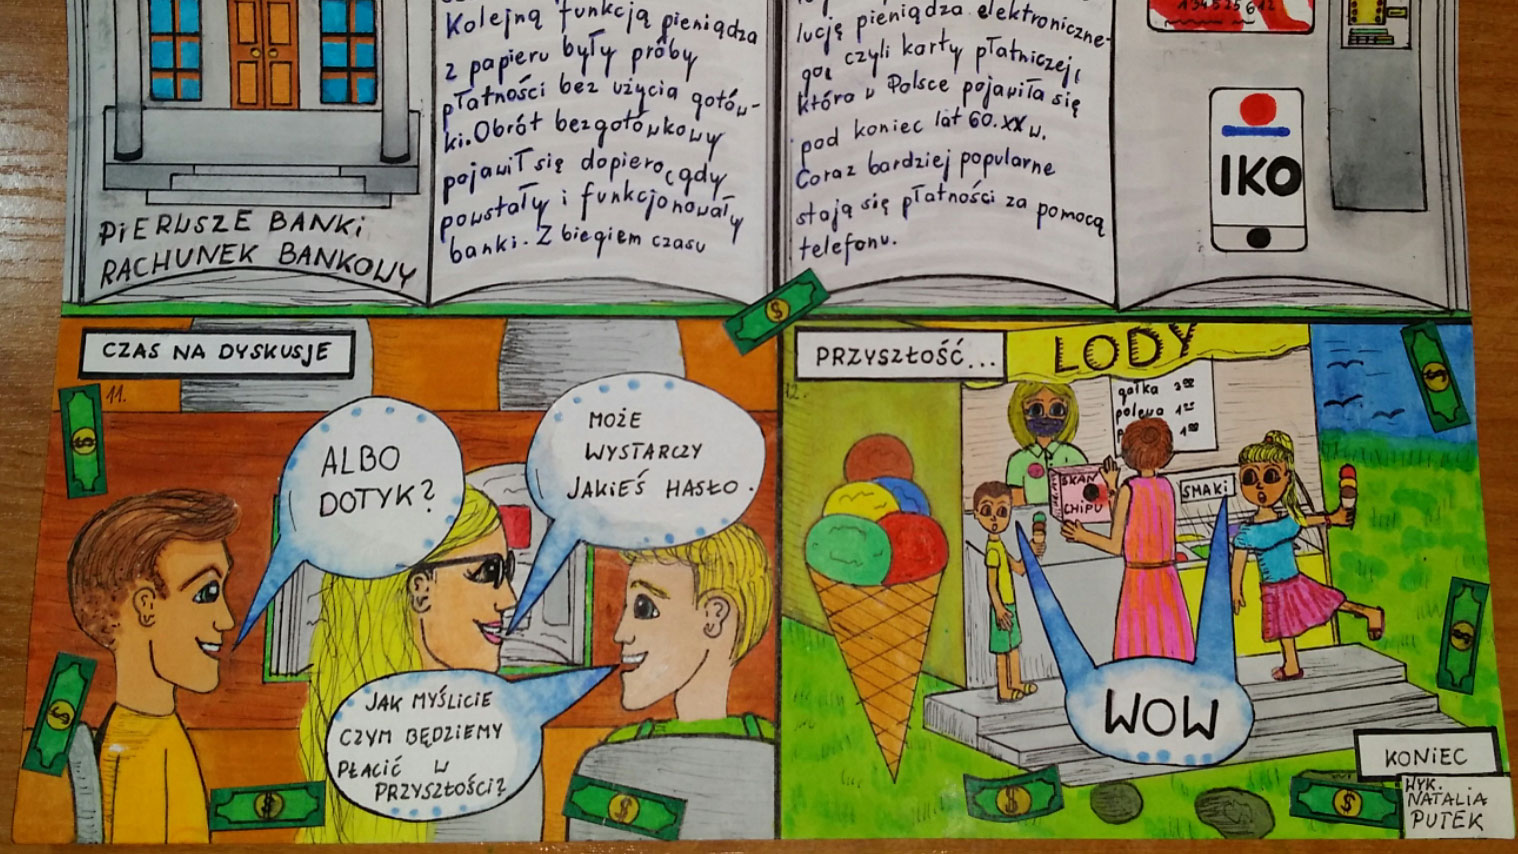 Kolejną funkcją pieniądza
z papieru były próby
płatności bez użycia gotów-
ki. Obrót bezgotówkowy
pojawił się dopiero, gdy
powstały i funkcjonowały
banki. Z biegiem czasu
lucję pieniądza elektroniczne-
go, czyli karty płatniczej,
która w Polsce pojawiła się
pod koniec lat 60. XX w.
Coraz bardziej popularne
stają się płatności za pomocą
telefonu.
IKO
PIERWSZE BANKI
RACHUNEK BANKOWY
CZAS NA DYSKUSJE
11.
ALBO
DOTYK?
MOŻE
WYSTARCZY
JAKIEŚ HASŁO.
JAK MYŚLICIE
CZYM BĘDZIEMY
PŁACIĆ W
PRZYSZŁOŚCI?
PRZYSZŁOŚĆ...
12.
LODY
gałka 3
polewa 1
SKAN
CHIPU
SMAKI
WOW
KONIEC
WYK.
NATALIA
PUTEK